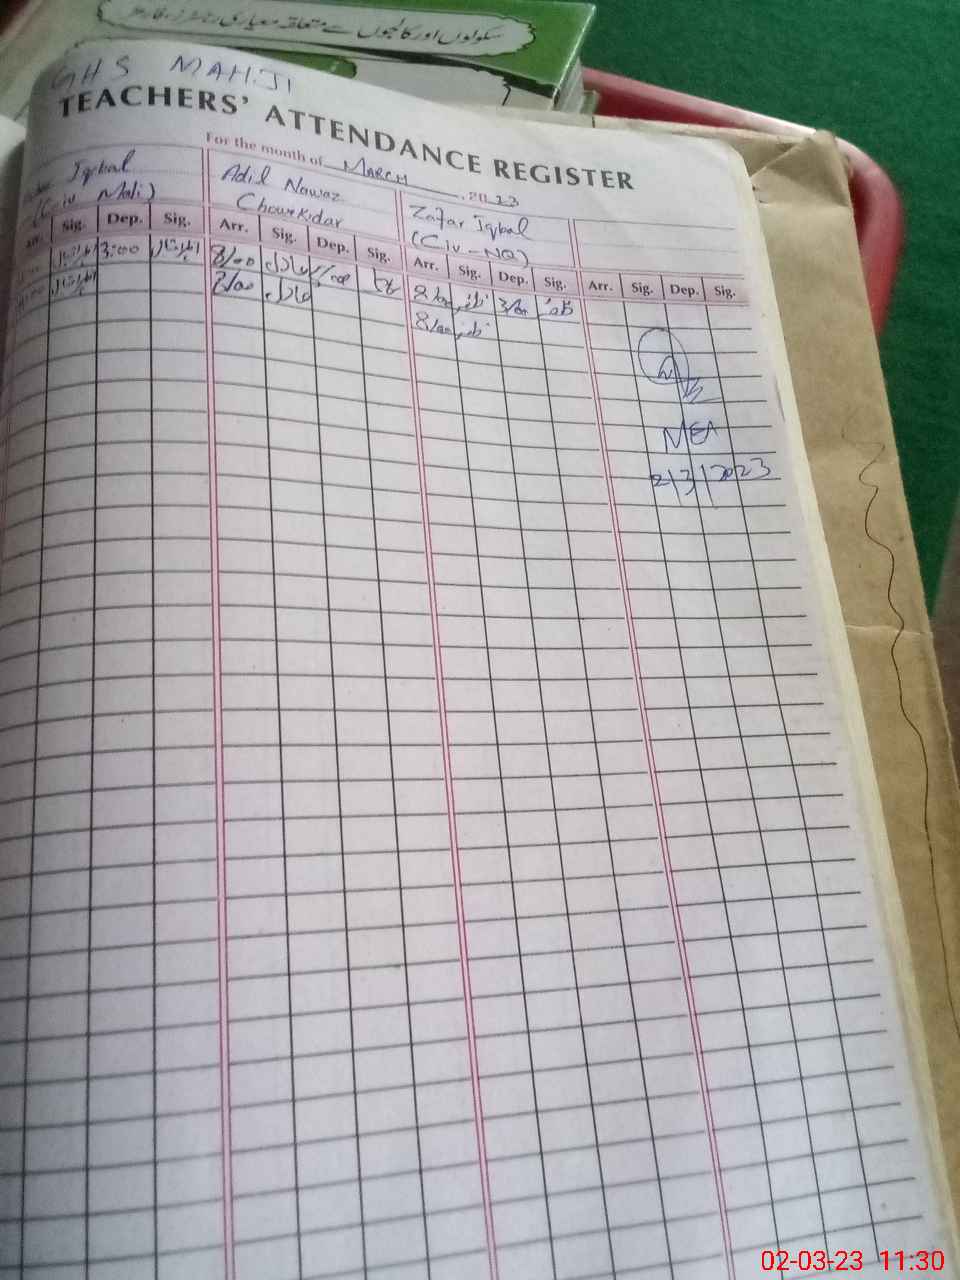 سکولوں اور کالجوں سے متعلقہ معیاری رجسٹرز، فارمز
GHS MAHIJI
TEACHERS' ATTENDANCE REGISTER
For the month of MARCH 2023
Iqbal
(Civ Mali)
Adil Nawaz
Chowkidar
Zafar Iqbal
(Civ-NQ)
Arr. Sig. Dep. Sig. Arr. Sig. Dep. Sig. Arr. Sig. Dep. Sig. Arr. Sig. Dep. Sig.
3:00 8/00 عادل 8/00 ظفر 3/00 ظفر
عادل 8/00 ظفر
MEA
2/3/2023
02-03-23 11:30